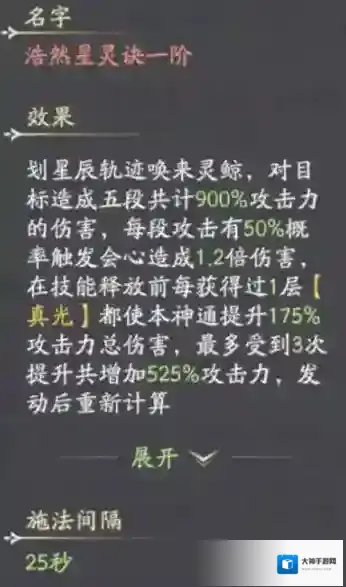 名字
浩然星灵诀一阶
效果
划星辰轨迹唤来灵鲸，对目
标造成五段共计900%攻击力
的伤害，每段攻击有50%概
率触发会心造成1.2倍伤害，
在技能释放前每获得过1层【
真光】都使本神通提升175%
攻击力总伤害，最多受到3次
提升共增加525%攻击力，发
动后重新计算
展开
施法间隔
25秒
大神手游网